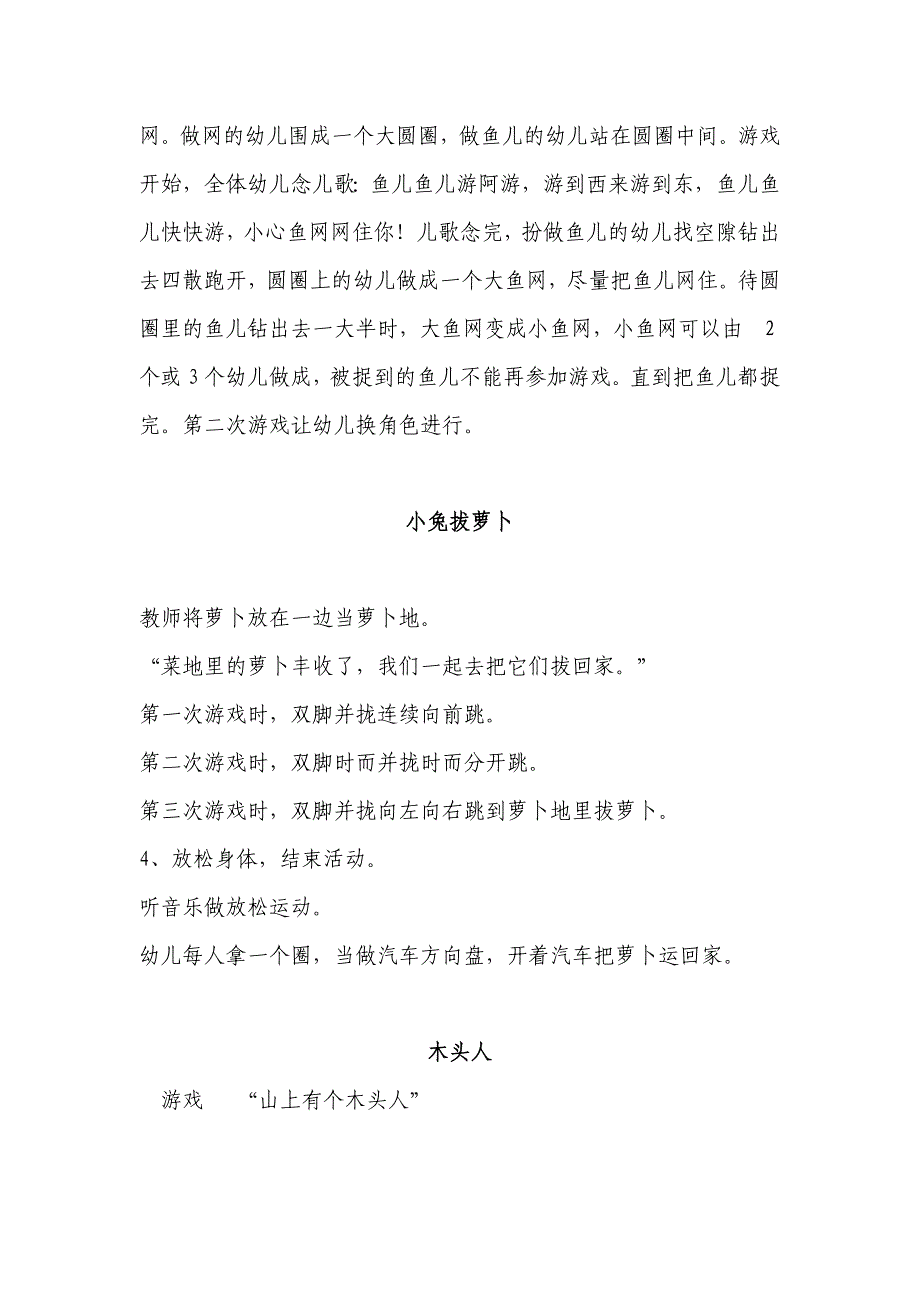 网。做网的幼儿围成一个大圆圈，做鱼儿的幼儿站在圆圈中间。游戏
开始，全体幼儿念儿歌：鱼儿鱼儿游阿游，游到西来游到东，鱼儿鱼
儿快快游，小心鱼网网住你！儿歌念完，扮做鱼儿的幼儿找空隙钻出
去四散跑开，圆圈上的幼儿做成一个大鱼网，尽量把鱼儿网住。待圆
圈里的鱼儿钻出去一大半时，大鱼网变成小鱼网，小鱼网可以由 2
个或 3 个幼儿做成，被捉到的鱼儿不能再参加游戏。直到把鱼儿都捉
完。第二次游戏让幼儿换角色进行。
小兔拔萝卜
教师将萝卜放在一边当萝卜地。
“菜地里的萝卜丰收了，我们一起去把它们拔回家。”
第一次游戏时，双脚并拢连续向前跳。
第二次游戏时，双脚时而并拢时而分开跳。
第三次游戏时，双脚并拢向左向右跳到萝卜地里拔萝卜。
4、放松身体，结束活动。
听音乐做放松运动。
幼儿每人拿一个圈，当做汽车方向盘，开着汽车把萝卜运回家。
木头人
游戏 “山上有个木头人”